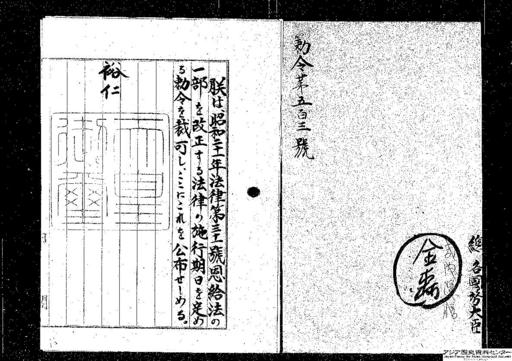 勅令第五百三號
総
各國務大臣
金森
朕は昭和二十一年法律第三十一號恩給法の
一部を改正する法律の施行期日を定め
る勅令を裁可し、ここにこれを公布せしめる。
裕仁
アジア歴史資料センター